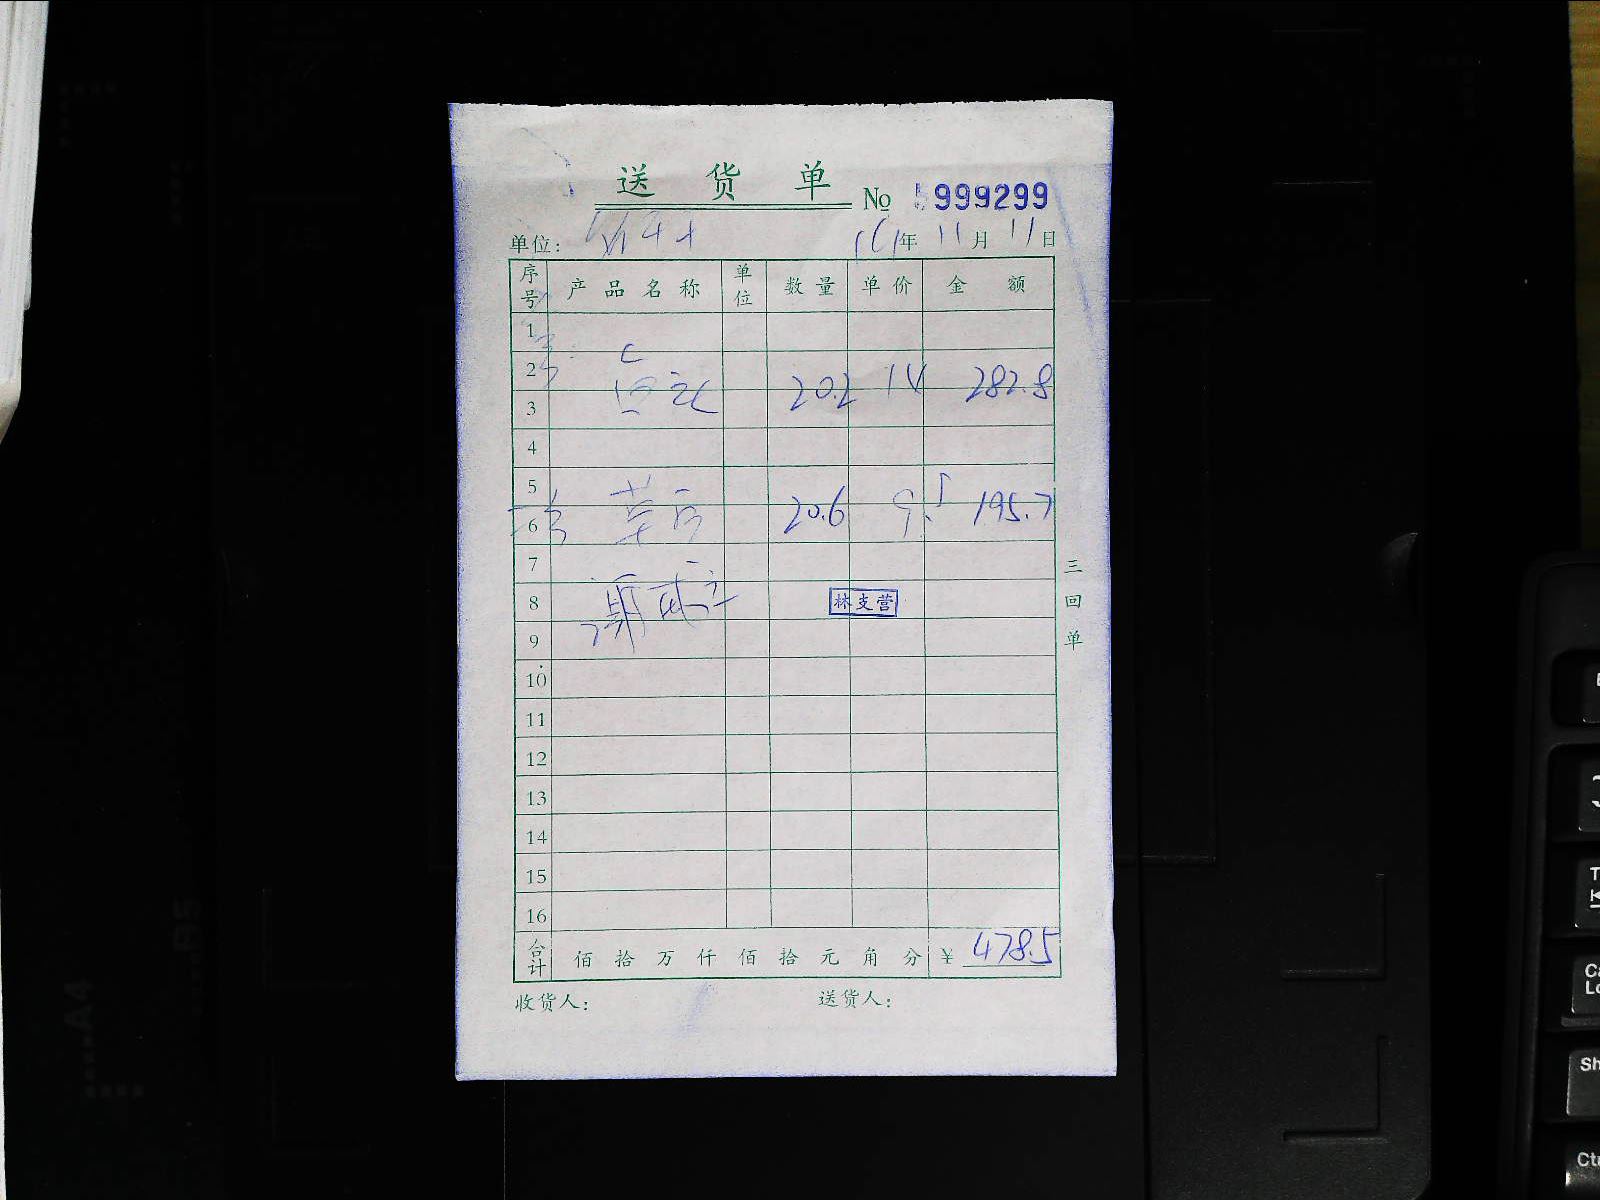 送货单 No 5999299
单位: 年 11 月 11 日
序号 产品名称 单位 数量 单价 金额
1
2
20.2 14 282.8
3
4
5
20.6 9.5 195.7
6
7
8 林支营
9
10
11
12
13
14
15
16
合计 佰 拾 万 仟 佰 拾 元 角 分 ¥ 478.5
收货人: 送货人:
三回单
A4
B5
Ctr